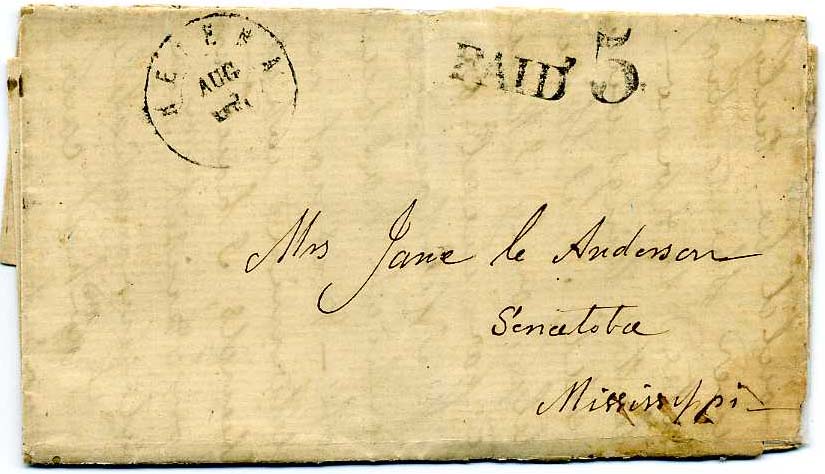 HELENA
AUG
PAID 5
Mrs Jane le Anderson
Senatoba
Mississippi